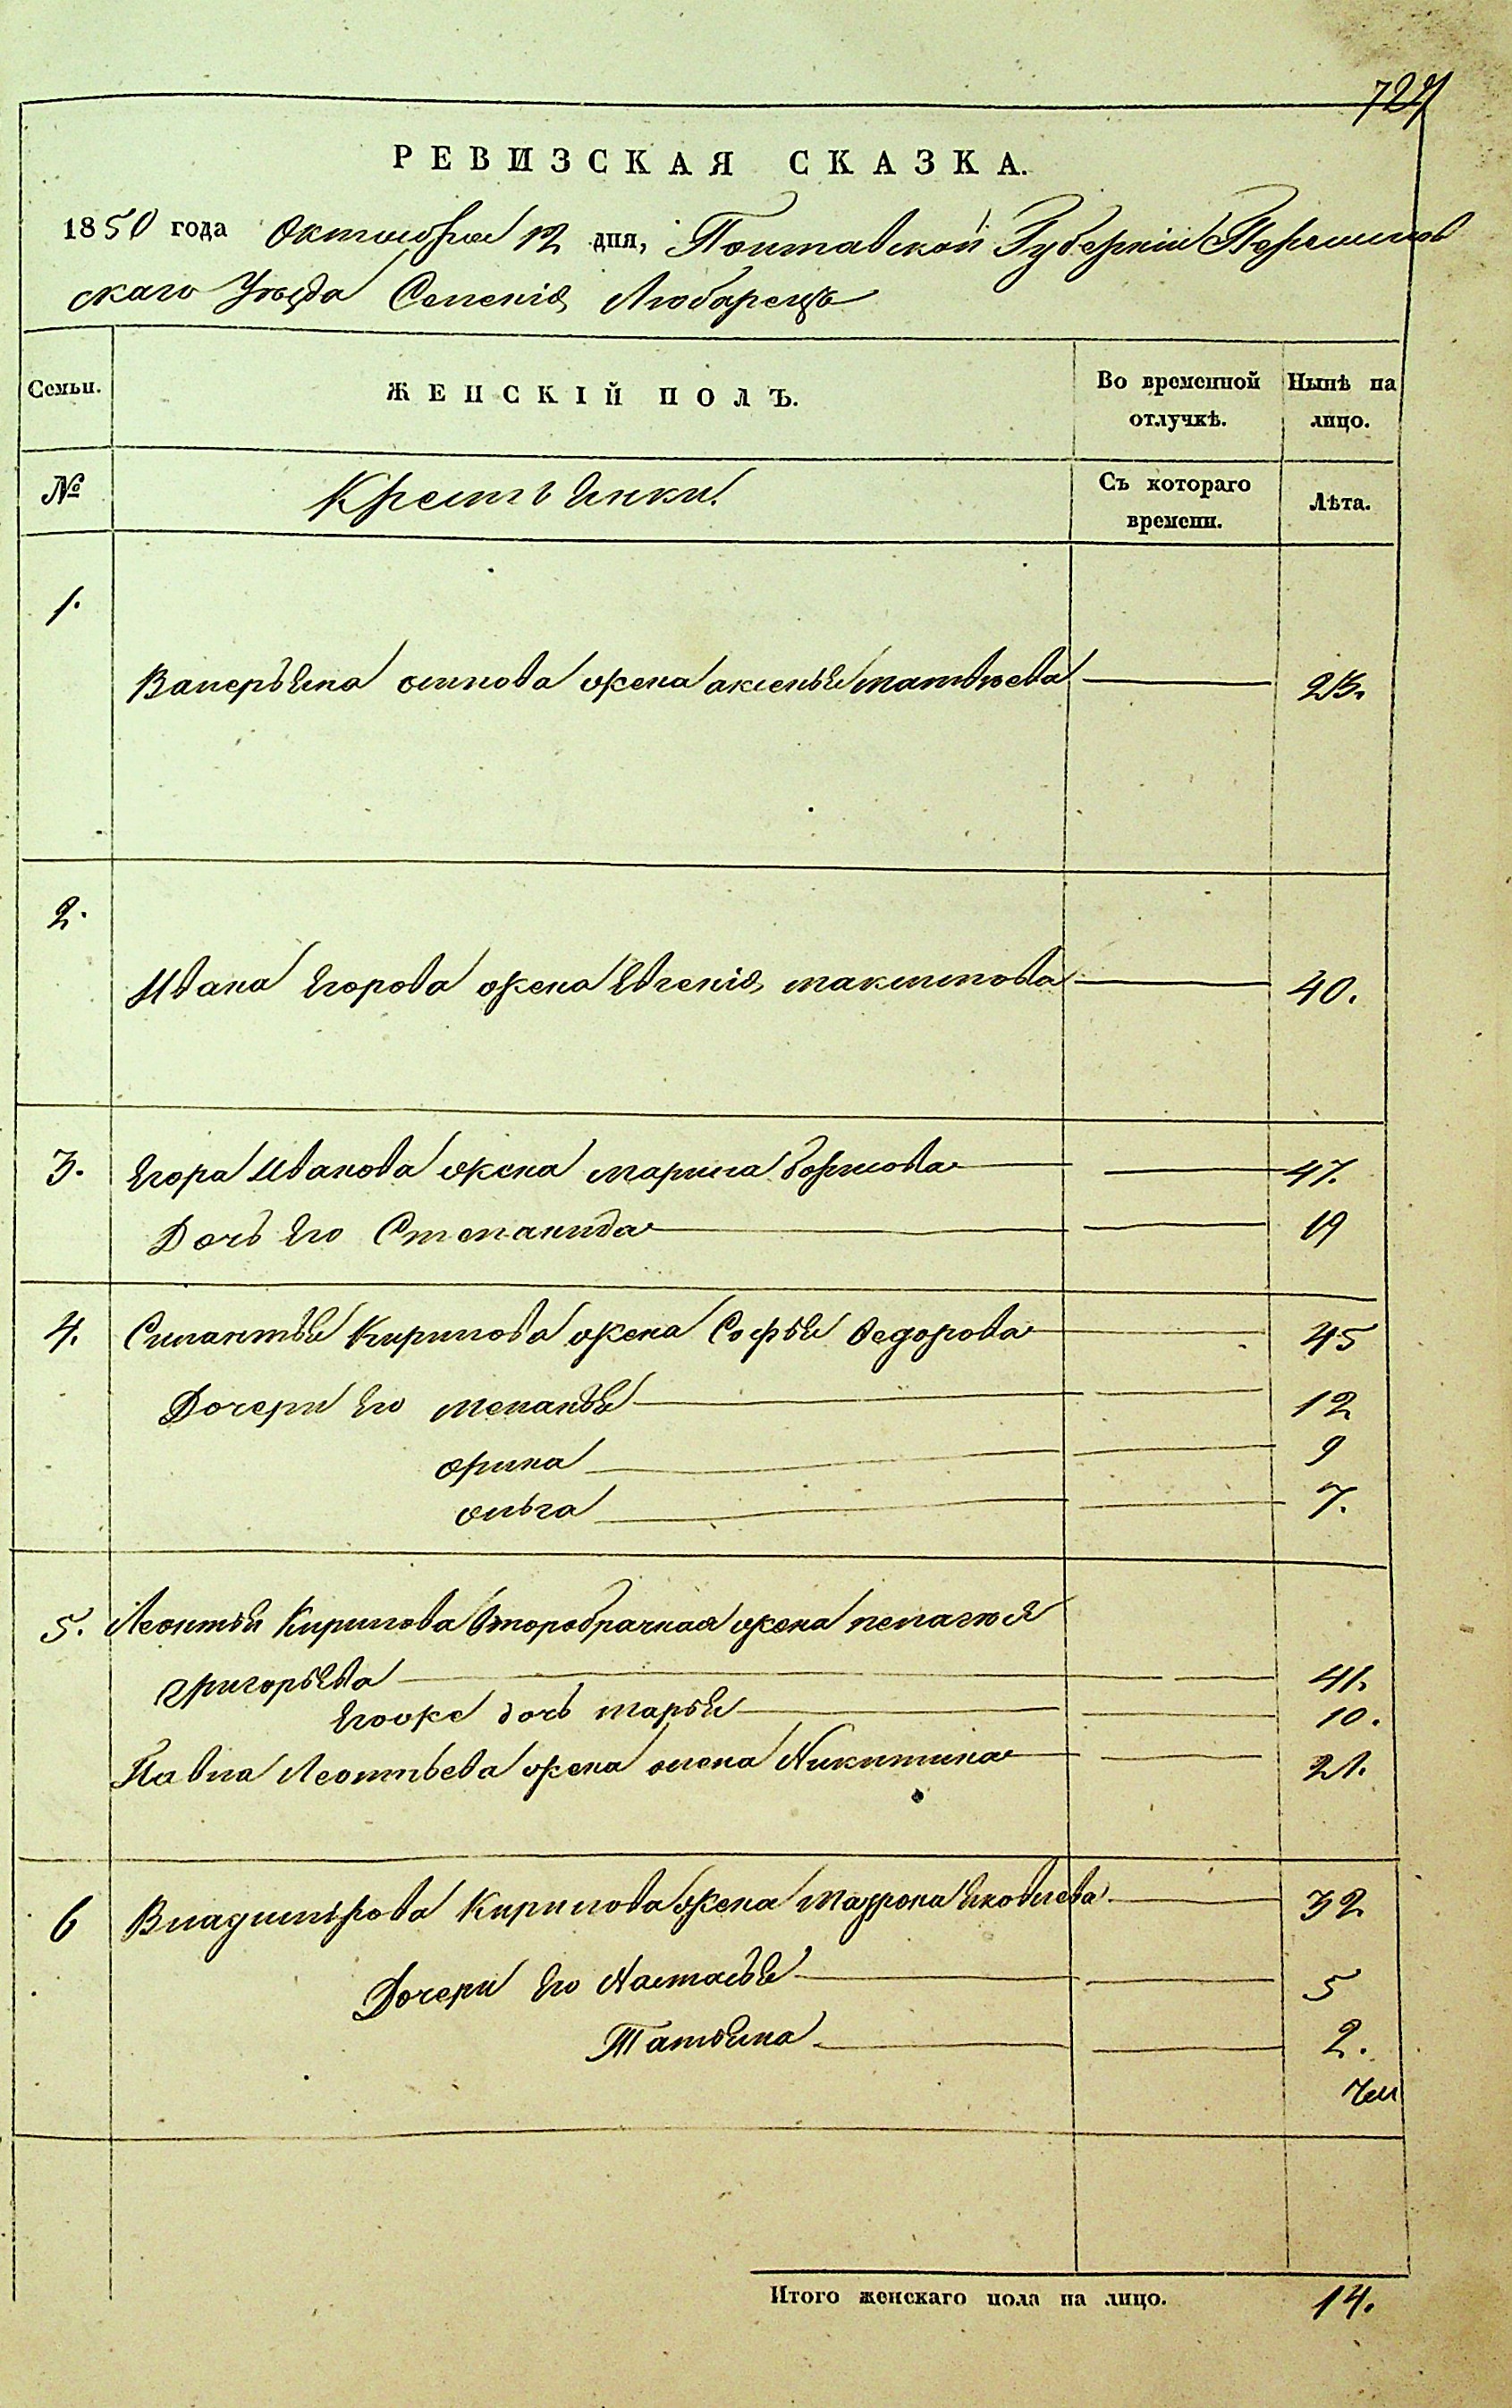 727
РЕВИЗСКАЯ СКАЗКА.
1850 года Октября 12 дня, Полтавской Губернии Пирятин
скаго Уѣзда Селенія Любарецъ
Семьи. ЖЕНСКІЙ ПОЛЪ. Во временной отлучкѣ. Нынѣ на лицо.
№ Крестьянки. Съ котораго времени. Лѣта.
1.
Валерьяна осипова жена аксенья матвѣева 23.
2.
Ивана Егорова жена Евгенія максимова 40.
3. Егора Иванова жена марина борисова 47.
Дочь Его Степанида 19
4. Силантья Кирилова жена Софья Федорова 45
Дочери Его меланья 12
орина 9
ольга 7.
5. Леонтья Кирилова второбрачная жена пелагея
григорьева 41.
Егоже дочь марья 10.
Павла Леонтьева жена олена Никитина 21.
6 Владимѣрова Кирилова жена Матрона Яковлева 32
Дочери Его Настасья 5
Татьяна 2.
Итого женскаго пола на лицо. 14.